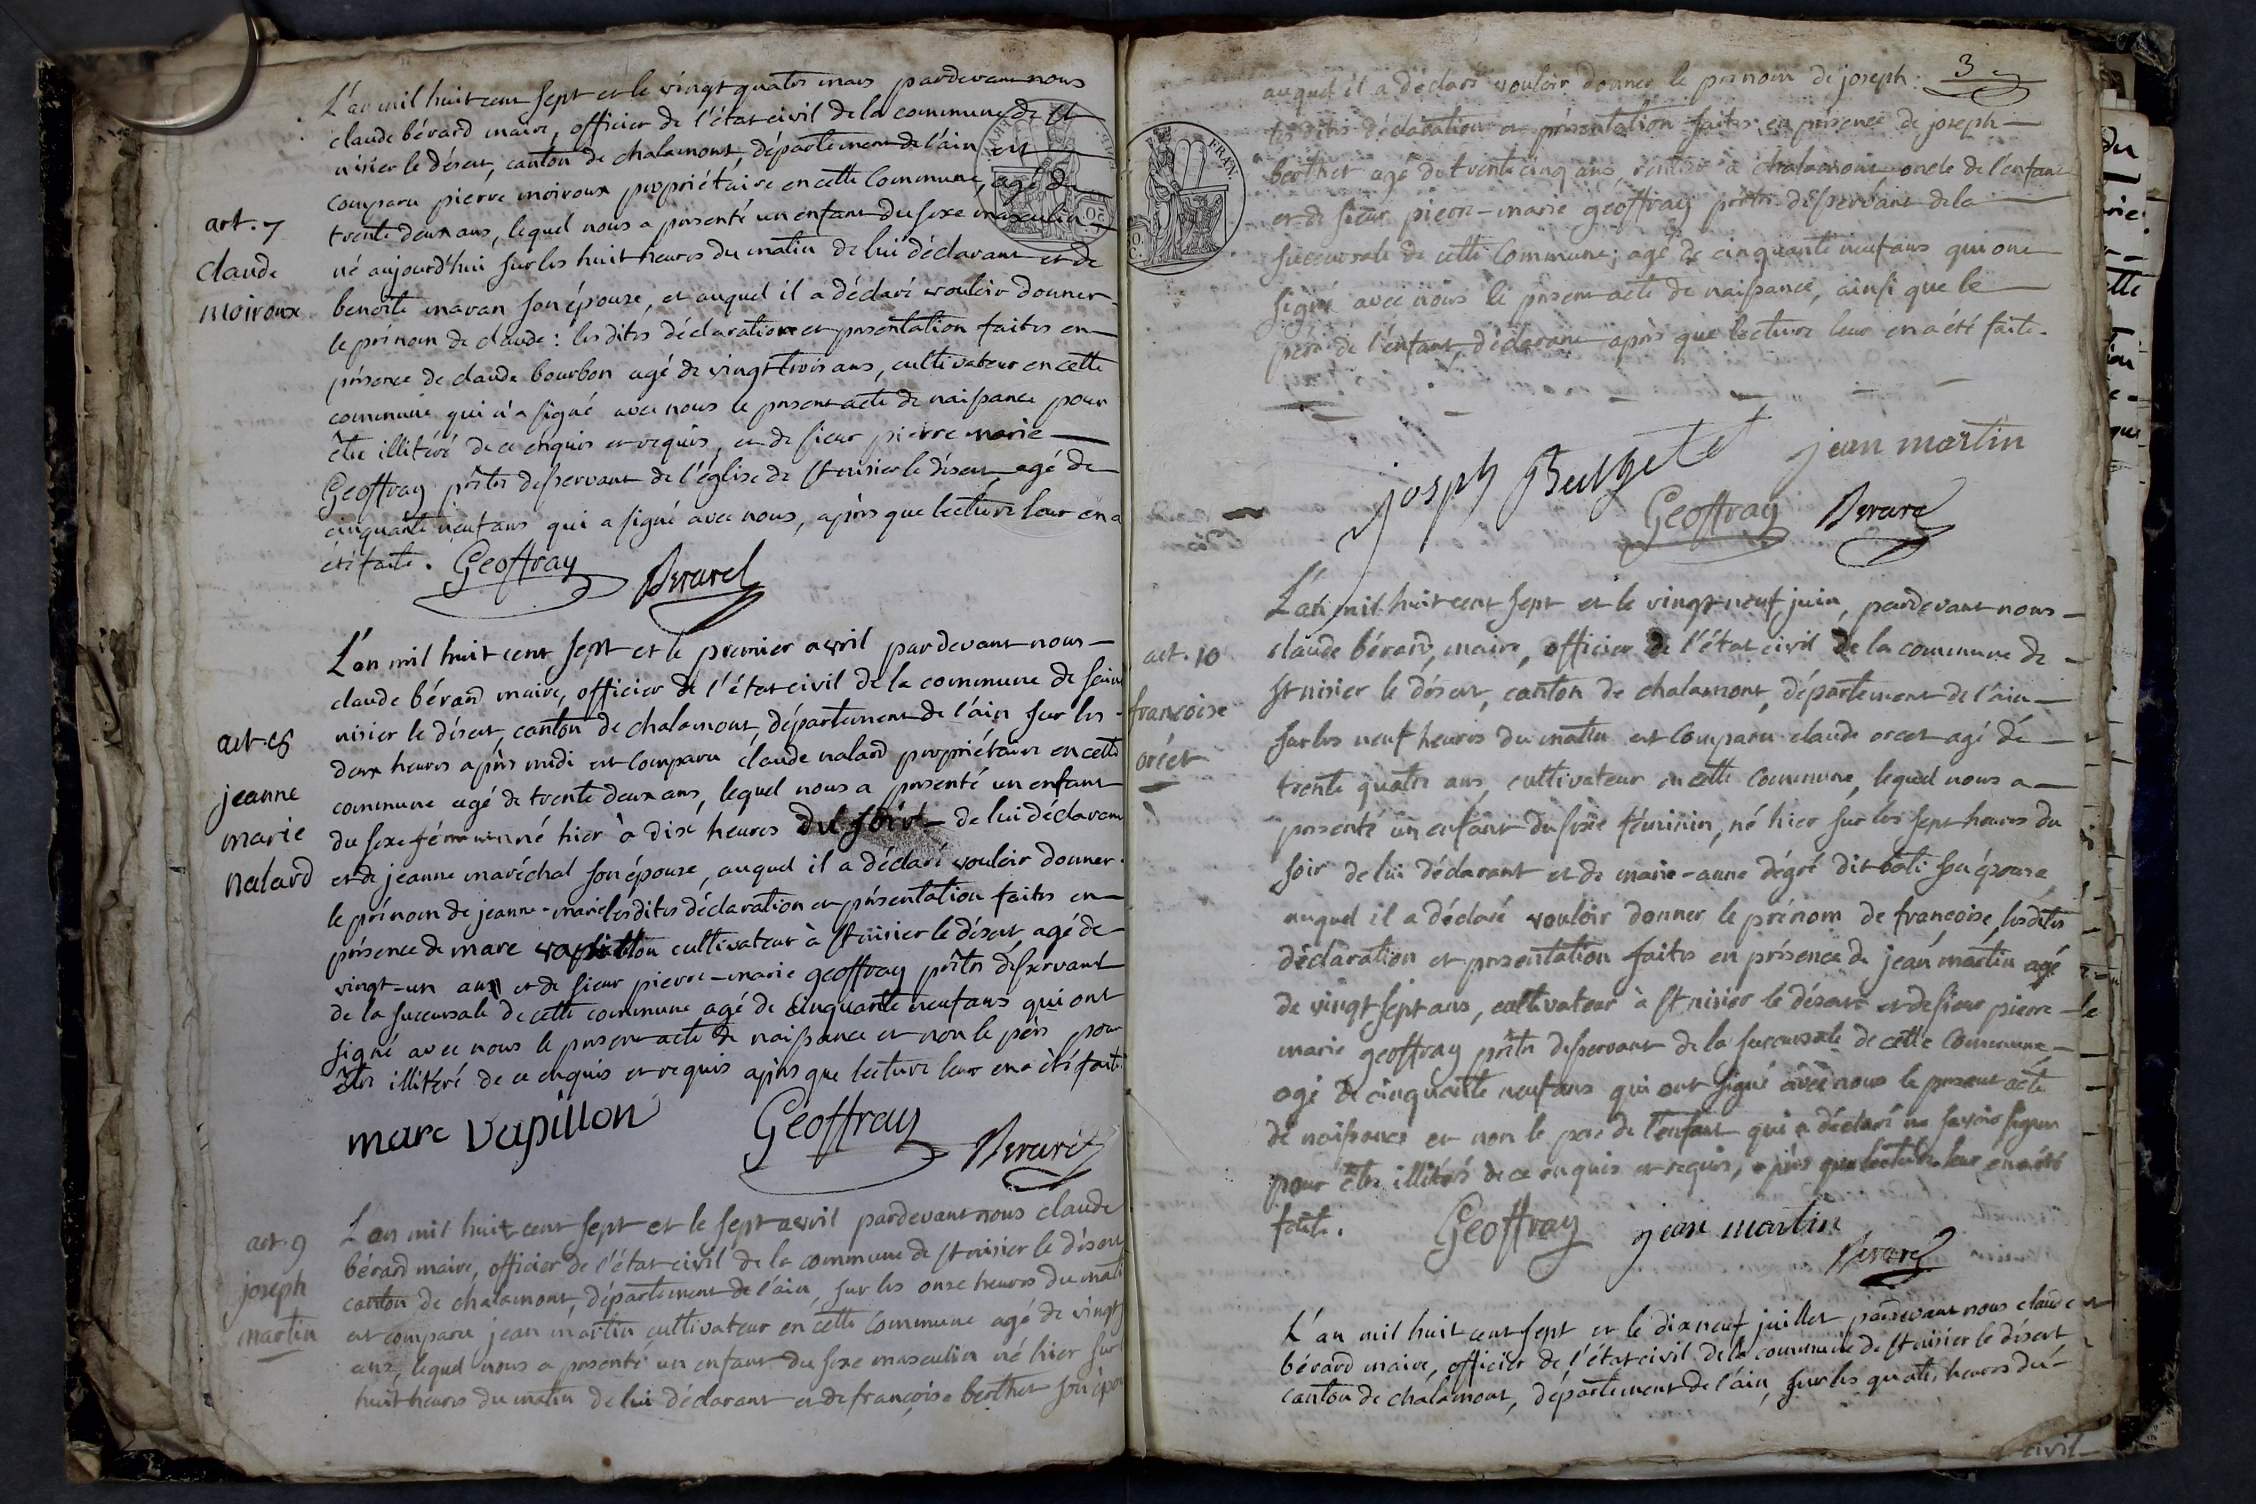 L'an mil huit cent sept et le vingt quatre mars pardevant nous
claude bérard maire, officier de l'état civil de la commune de St
nisier le désert, canton de chalamont, département de l'ain est
comparu pierre moiroux propriétaire en cette commune, agé de
trente deux ans, lequel nous a présenté un enfant du sexe masculin
né aujourd'hui sur les huit heures du matin de lui déclarant et de
benoîte maran son épouse, et auquel il a déclaré vouloir donner
le prénom de claude : les dites déclaration et présentation faites en
présence de claude bourbon agé de vingt trois ans, cultivateur en cette
commune qui n'a signé avec nous le présent acte de naissance pour
être illitéré de ce enquis et requis, et de sieur pierre marie
Geoffray prêtre desservant de l'église de St nisier le désert, agé de
cinquante neuf ans qui a signé avec nous, après que lecture leur en a
été faite. Geoffray Berard
art. 7
claude
moiroux
L'an mil huit cent sept et le premier avril pardevant nous
claude bérard maire, officier de l'état civil de la commune de saint
nisier le désert, canton de chalamont, département de l'ain sur les
deux heures après midi est comparu claude nalard propriétaire en cette
commune agé de trente deux ans, lequel nous a présenté un enfant
du sexe féminin né hier à dix heures du soir de lui déclarant
et de jeanne maréchal son épouse, auquel il a déclaré vouloir donner
le prénom de jeanne-marie les dites déclaration et présentation faites en
présence de marc vapillon cultivateur à St nisier le désert agé de
vingt-un ans et de sieur pierre-marie geoffray prêtre desservant
de la succursale de cette commune agé de cinquante neuf ans qui ont
signé avec nous le présent acte de naissance et non le père pour
être illitéré de ce enquis et requis après que lecture leur en a été faite
art. 8
jeanne
marie
nalard
marc vapillon Geoffray Berard
L'an mil huit cent sept et le sept avril pardevant nous claude
bérard maire, officier de l'état civil de la commune de St nisier le désert
canton de chalamont, département de l'ain, sur les onze heures du mati
est comparu jean martin cultivateur en cette commune agé de vingt
ans, lequel nous a présenté un enfant du sexe masculin né hier sur
huit heures du matin de lui déclarant et de françoise berthet son épou
art. 9
joseph
martin
3
auquel il a déclaré vouloir donner le prénom de joseph.
les dites déclaration et présentation faites en présence de joseph
berthet agé de trente cinq ans, rentier à chalamont oncle de l'enfant
et de sieur pierre-marie geoffray prêtre desservant de la
succursale de cette commune, agé de cinquante neuf ans qui ont
signé avec nous le présent acte de naissance, ainsi que le
père de l'enfant, déclarant après que lecture leur en a été faite.
jean martin
Geoffray Berard
L'an mil huit cent sept et le vingt-neuf juin, pardevant nous
claude bérard, maire, officier de l'état civil de la commune de
St nisier le désert, canton de chalamont, département de l'ain
sur les neuf heures du matin est comparu claude orcet agé de
trente quatre ans, cultivateur en cette commune, lequel nous a
présenté un enfant du sexe féminin, né hier sur les sept heures du
soir de lui déclarant et de marie-anne dégré dit bati son épouse
auquel il a déclaré vouloir donner le prénom de françoise, les dites
déclaration et présentation faites en présence de jean martin agé
de vingt sept ans, cultivateur à St nisier le désert et de sieur pierre
marie geoffray prêtre desservant de la succursale de cette commune
agé de cinquante neuf ans qui ont signé avec nous le présent acte
de naissance et non le père de l'enfant qui a déclaré ne savoir signer
pour être illitéré de ce enquis et requis, après que lecture leur en a été
faite. Geoffray jean martin
Berard
art. 10
françoise
orcet
L'an mil huit cent sept et le dix neuf juillet pardevant nous claude
bérard maire, officier de l'état civil de la commune de St nisier le désert
canton de chalamont, département de l'ain, sur les quatre heures du
civil